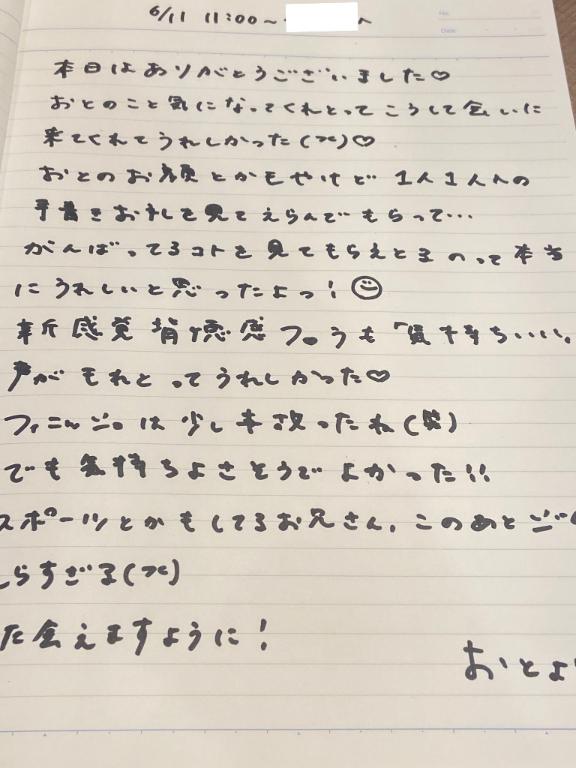 6/11 11:00~ へ
No.
Date
本日はありがとうございました♡
おとのこと気になってくれとってこうして会いに
来てくれてうれしかった(泣)♡
おとのお顔とかもやけど 1人1人への
手書きお礼を見てえらんでもらって…
がんばってるコトを見てもらえとるのって本当
にうれしいと思ったよっ!
新感覚背徳感プ うも 気持ちいい。
声がもれとってうれしかった♡
フィニッシュは少し手 ったね(笑)
でも気持ちよさそうでよかった!!
スポーツとかもしてるお兄さん。このあとジ
しらすぎる(泣)
た会えますように!
おとよ